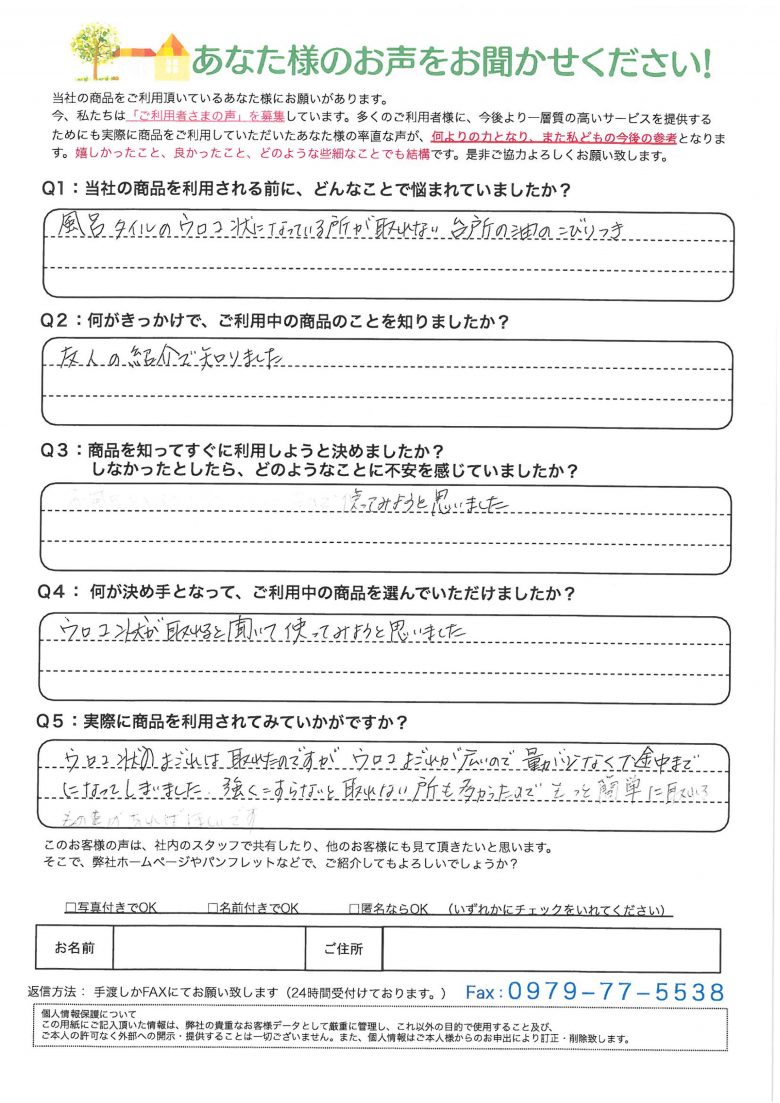 あなた様のお声をお聞かせください!
当社の商品をご利用頂いているあなた様にお願いがあります。
今、私たちは「ご利用者さまの声」を募集しています。多くのご利用者様に、今後より一層質の高いサービスを提供する
ためにも実際に商品をご利用していただいたあなた様の率直な声が、何よりの力となり、また私どもの今後の参考となりま
す。嬉しかったこと、良かったこと、どのような些細なことでも結構です。是非ご協力よろしくお願い致します。
Q1：当社の商品を利用される前に、どんなことで悩まれていましたか？
風呂タイルのウロコ状になっている所が取れない 台所の油のこびりつき
Q2：何がきっかけで、ご利用中の商品のことを知りましたか？
友人の紹介で知りました
Q3：商品を知ってすぐに利用しようと決めましたか？
しなかったとしたら、どのようなことに不安を感じていましたか？
使ってみようと思いました
Q4： 何が決め手となって、ご利用中の商品を選んでいただけましたか？
ウロコ状が取れると聞いて使ってみようと思いました
Q5：実際に商品を利用されてみていかがですか？
ウロコ状のよごれは取れたのですが ウロコよごれが広いので 量が少なくて途中まで
になってしまいました 強くこすらないと取れない所も多かったので もっと簡単に取れる
ものがあればほしいです
このお客様の声は、社内のスタッフで共有したり、他のお客様にも見て頂きたいと思います。
そこで、弊社ホームページやパンフレットなどで、ご紹介してもよろしいでしょうか？
□写真付きでOK □名前付きでOK □匿名ならOK （いずれかにチェックをいれてください）
お名前 ご住所
返信方法： 手渡しかFAXにてお願い致します（24時間受付けております。） Fax：0979-77-5538
個人情報保護について
この用紙にご記入頂いた情報は、弊社の貴重なお客様データとして厳重に管理し、これ以外の目的で使用すること及び、
ご本人の許可なく外部への開示・提供することは一切ございません。また、個人情報はご本人様からのお申出により訂正・削除致します。